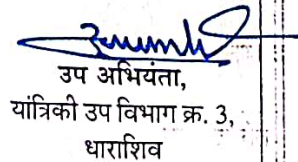 उप अभियंता,
यांत्रिकी उप विभाग क्र. 3,
धाराशिव